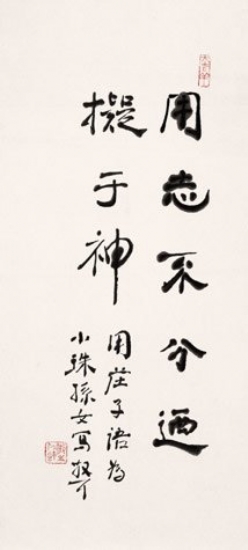 用志不分迺
擬于神
用莊子語為
小珠孫女寫